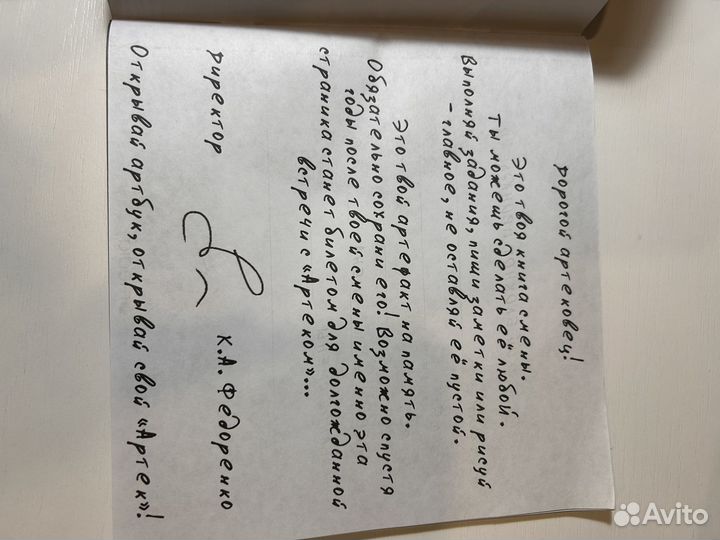 Дорогой артековец!
Это твоя книга смены.
Ты можешь сделать её любой.
Выполняй задания, пиши заметки или рисуй
- главное, не оставляй её пустой.
Это твой артефакт на память.
Обязательно сохрани его! Возможно спустя
годы после твоей смены именно эта
страничка станет билетом для долгожданной
встречи с «Артеком»...
Директор
К.А. Федоренко
Открывай артбук, открывай свой «Артек»!
Avito